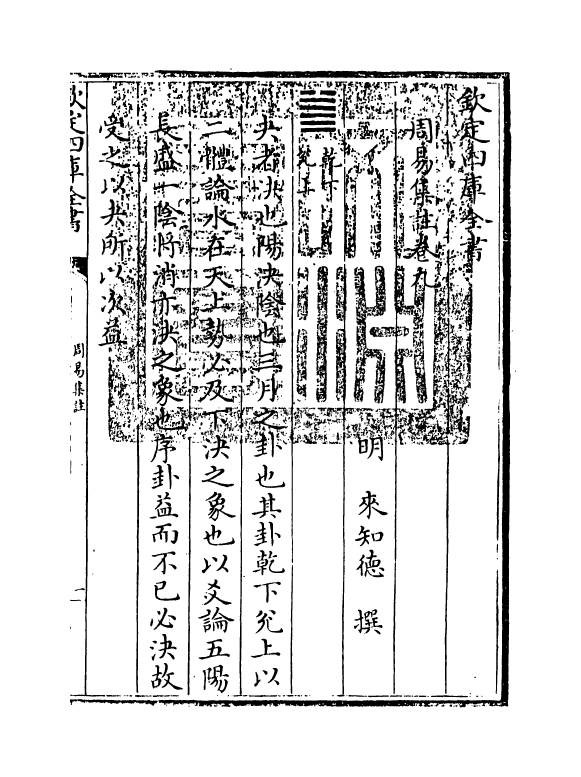 欽定四庫全書
周易集註卷九
明 來知德 撰
乾下
兌上
夬者决也陽决陰也三月之卦也其卦乾下兌上以
二體論水在天上勢必及下决之象也以爻論五陽
長盛一陰將消亦决之象也序卦益而不已必決故
受之以夬所以次益
欽定四庫全書
周易集註